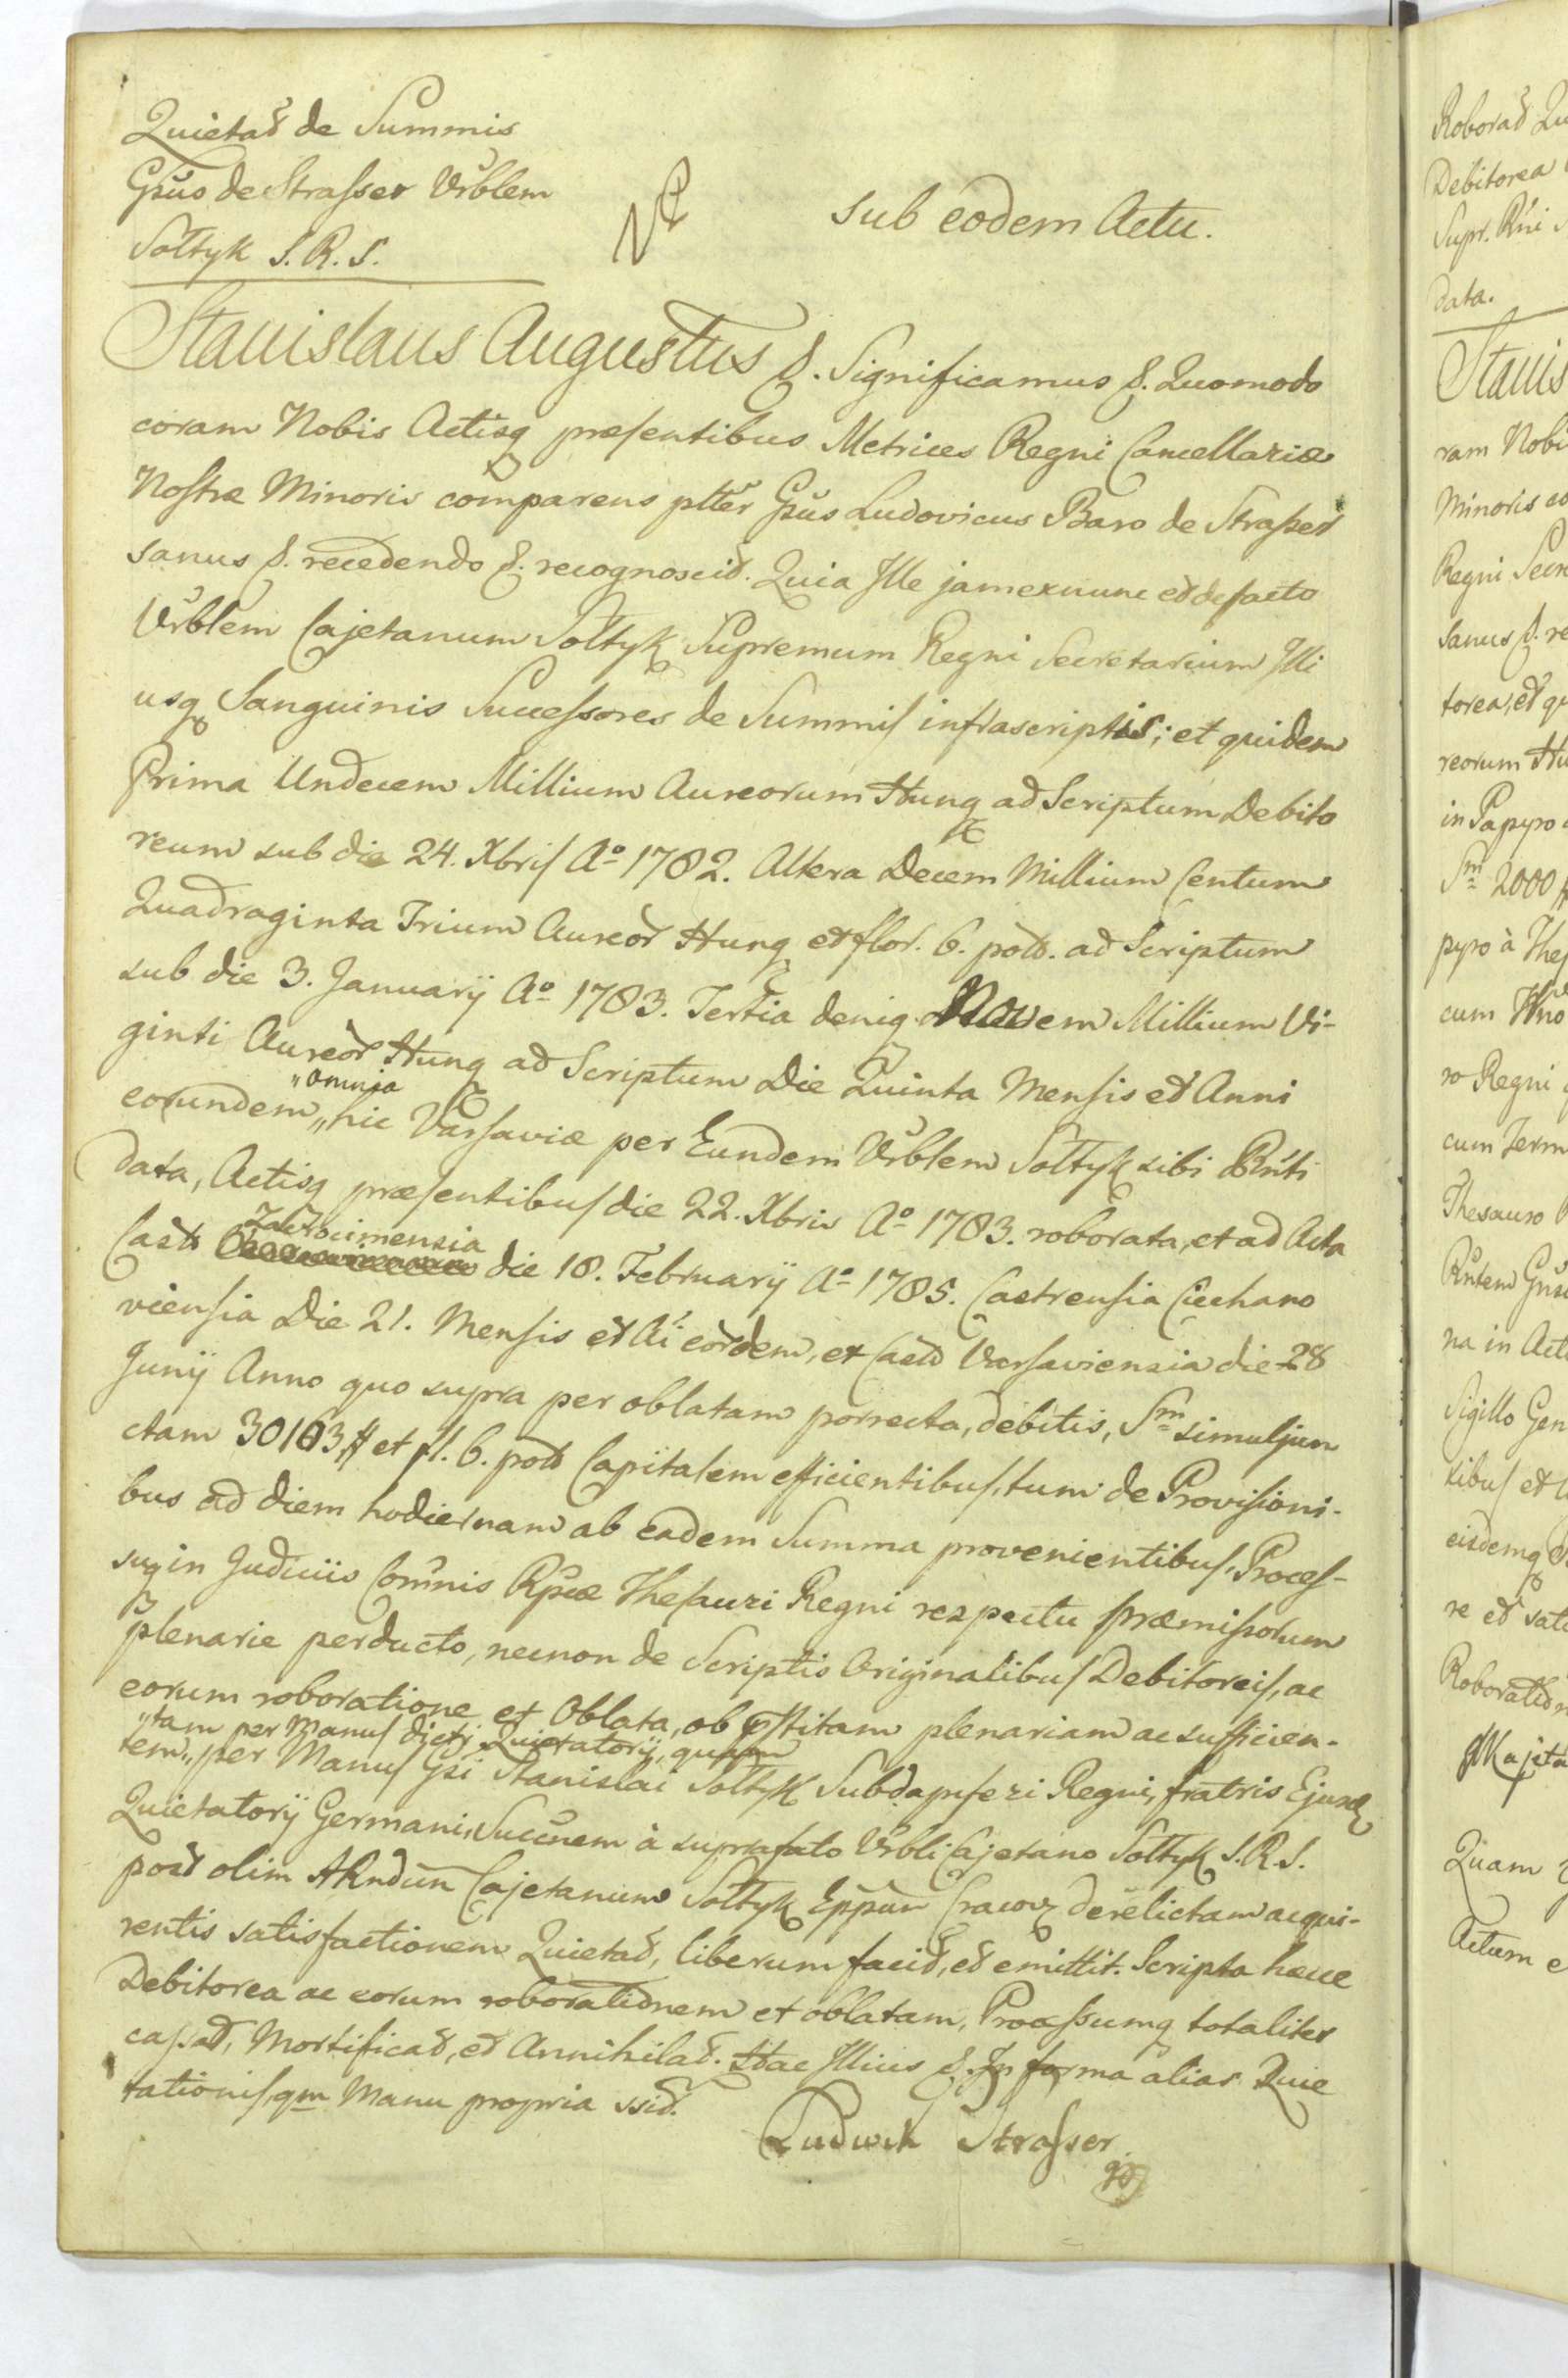 Quietat de Summis
Gsus de Strasser Urblem
Sołtyk S. R. S.
sub eodem Actu.
Stanislaus Augustus &. Significamus &. Quomodo
coram Nobis Actisq præsentibus Metrices Regni Cancellariæ
Nostræ Minoris comparens plter Gsus Ludovicus Baro de Strasser
sanus &. recedendo &. recognoscit. Quia Ille jam ex nunc et de facto
Urblem Cajetanum Sołtyk Supremum Regni Secretarium Illi
usq Sanguinis Successores de Summis infrascriptis; et quidem
Prima Undecem Millium Aureorum Hung ad Scriptum Debito
reum sub die 24. Xbris Ao 1782. Altera Decem Millium Centum
Quadraginta Trium Aureor Hung et flor. 6. pold. ad Scriptum
sub die 3. Januarij Ao 1783. Tertia deniq Novem Millium Vi-
ginti Aureor Hung ad Scriptum Die Quinta Mensis et Anni
eorundem „omnia„ hic Varsaviæ per Eundem Urblem Sołtyk sibi Rnti
data, Actisq præsentibus die 22. Xbris Ao 1783. roborata, et ad Acta
Castr Zakrocimensia die 18. Februarij Ao 1785. Castrensia Ciechano
viensia Die 21. Mensis et Ai eordem, et Castr Varsaviensia die 28
Junij Anno quo supra per oblatam porrecta, debitis, Sm simul jun
ctam 30163 # et fl. 6. pold Capitalem efficientibus, tum de Provisioni-
bus ad diem hodiernam ab eadem Summa provenientibus, Proces-
suq in Judiciis Comnis Rpcæ Thesauri Regni respectu præmissorum
plenarie perducto, necnon de Scriptis Originalibus Debitoreis, ac
eorum roboratione et Oblata, ob pstitam plenariam ac sufficien-
tem „tam per Manus dicti Quietatorij, quam„ per Manus Gsi Stanislai Sołtyk Subdapiferi Regni, fratris Ejusd
Quietatorij Germani, Succnem à supra fato Urbli Cajetano Sołtyk S. R. S.
post olim Rndum Cajetanum Sołtyk Eppum Cracov derelictam acqui-
rentis satisfactionem Quietat, liberum facit, et emittit. Scripta hæcce
Debitorea ac eorum roborationem et oblatam, Processumq totaliter
cassat, Mortificat, et Annihilat. Hac Illius &. In forma alias Quie
tationis, qm Manu propria ssit.
Ludwik Strasser
Roborat
Debitorea
Supr. Rni
data.
Stanis
ram Nobi
Minoris co
Regni Secre
sanus &. re
torea, et qu
reorum Hu
in Papyro
Sm 2000 #
pyro à Thes
cum
ro Regni
cum Term
Thesauro
Rntem Gsu
na in Acti
Sigillo Gen
tibus et
eisdemq
re et sati
Roboration
Kajeta
Quam
Actum e